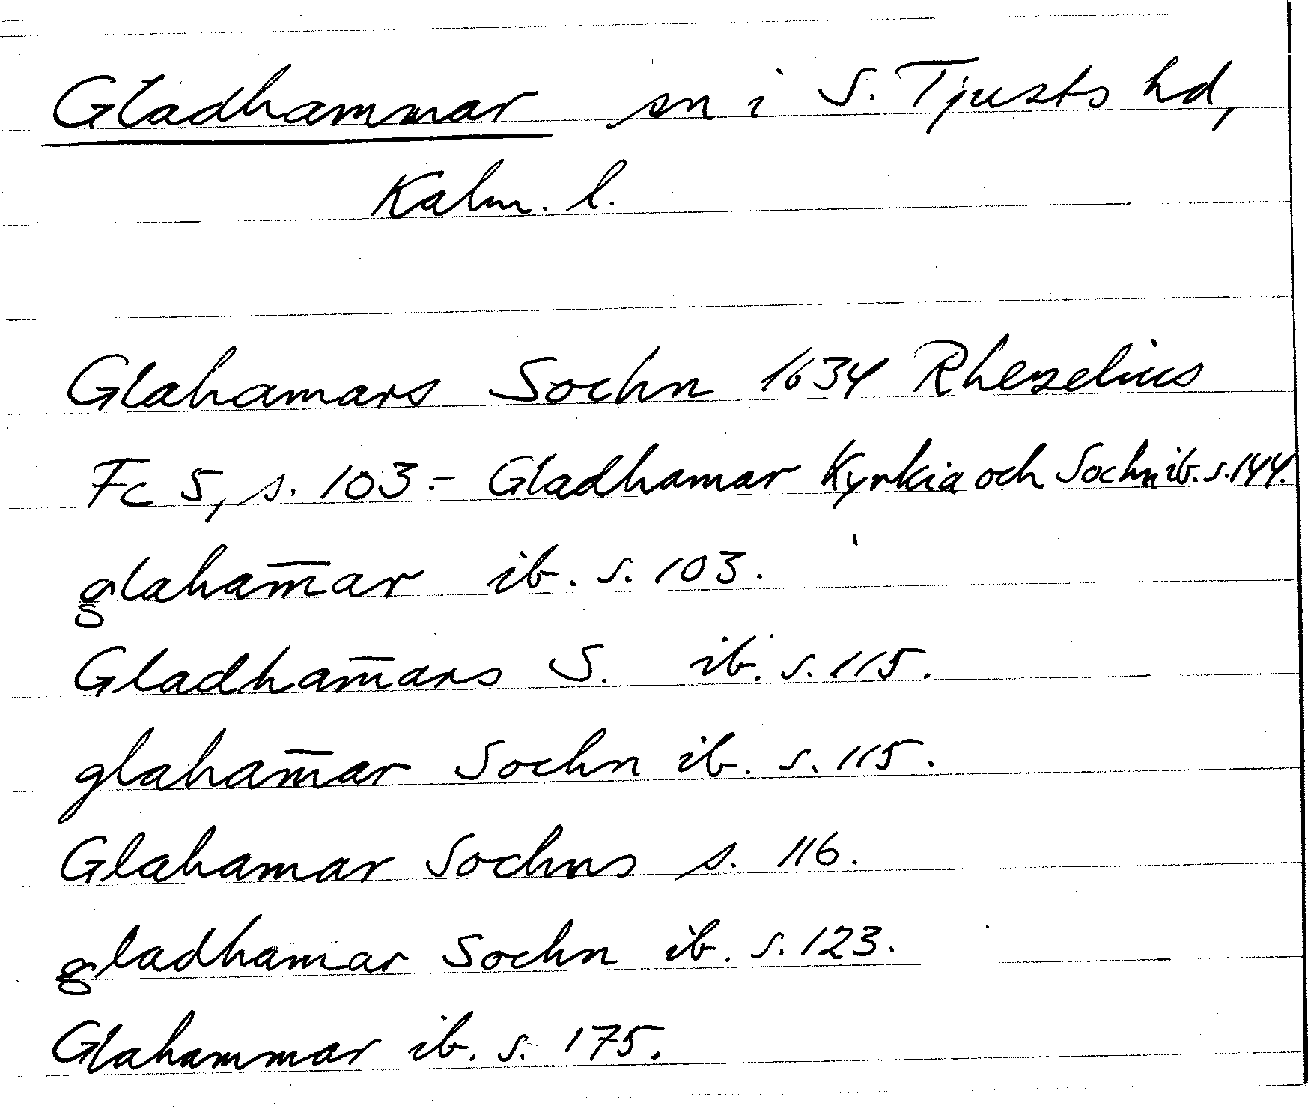 Gladhammar sn i S. Tjusts hd,
Kalm. l.
Glahamars Sochn 1634 Rhezelius
Fc 5, s. 103. – Gladhamar Kyrkia och Sochn ib. s. 144.
glaham̄ar ib. s. 103.
Gladham̄ars S. ib. s. 115.
glaham̄ar Sochn ib. s. 115.
Glahamar Sochns s. 116.
gladhamar Sochn ib. s. 123.
Glahammar ib. s. 175.